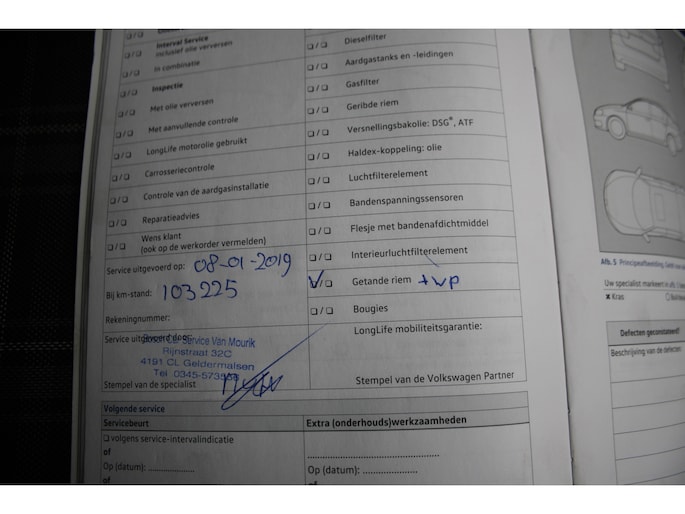 Interval Service
inclusief olie verversen
In combinatie
Inspectie
Met olie verversen
Met aanvullende controle
LongLife motorolie gebruikt
Carrosseriecontrole
Controle van de aardgasinstallatie
Reparatieadvies
Wens klant
(ook op de werkorder vermelden)
Service uitgevoerd op: 08-01-2019
Bij km-stand: 103225
Rekeningnummer:
Service uitgevoerd door:
Service Van Mourik
Rijnstraat 32C
4191 CL Geldermalsen
Tel. 0345-573
Stempel van de specialist
Dieselfilter
Aardgastanks en -leidingen
Gasfilter
Geribde riem
Versnellingsbakolie: DSG®, ATF
Haldex-koppeling: olie
Luchtfilterelement
Bandenspanningssensoren
Flesje met bandenafdichtmiddel
Interieurluchtfilterelement
Getande riem + wp
Bougies
LongLife mobiliteitsgarantie:
Stempel van de Volkswagen Partner
Volgende service
Servicebeurt
Extra (onderhouds)werkzaamheden
volgens service-intervalindicatie
of
Op (datum): ....................
of
Op (datum): ....................
Afb. 5 Principeafbeelding.
Uw specialist markeert in afb. 5
x Kras
Defecten geconstateerd?
Beschrijving van de defecten: